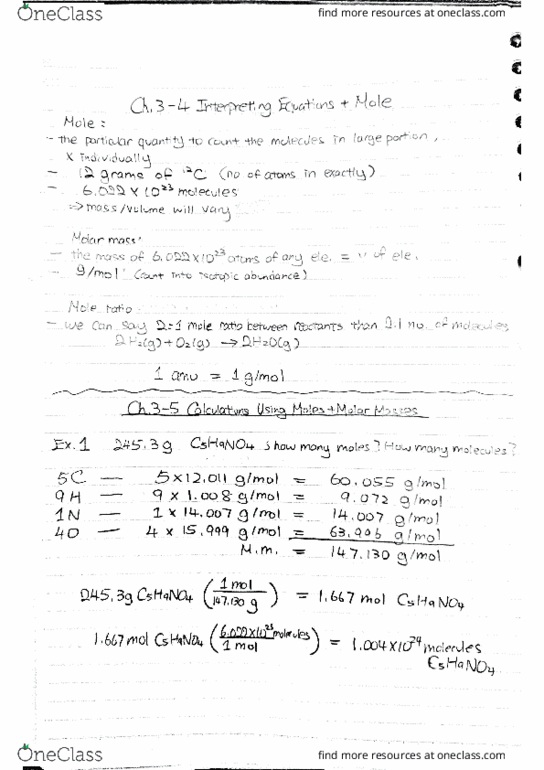 OneClass
find more resources at oneclass.com
Ch.3-4 Interpreting Equations + Mole
Mole :
- the particular quantity to count the molecules in large portion,
X individually
- 12 grams of ¹²C (no of atoms in exactly)
- 6.022 X 10²³ molecules
⇒ mass/volume will vary
Molar mass:
- the mass of 6.022X10²³ atoms of any ele. = " of ele.
- g/mol : (count into isotopic abundance)
Mole ratio
- we can say 2:1 mole ratio between reactants than 2:1 no. of molecules
2H₂(g) + O₂(g) → 2H₂O(g)
1 amu = 1 g/mol
Ch.3-5 Calculations Using Moles + Molar Masses
Ex.1 245.3g C₅H₉NO₄ how many moles? How many molecules?
5C — 5 x 12.011 g/mol = 60.055 g/mol
9H — 9 x 1.008 g/mol = 9.072 g/mol
1N — 1 x 14.007 g/mol = 14.007 g/mol
4O — 4 x 15.999 g/mol = 63.996 g/mol
M.m. = 147.130 g/mol
245.3g C₅H₉NO₄ (1 mol / 147.130 g) = 1.667 mol C₅H₉NO₄
1.667 mol C₅H₉NO₄ (6.022X10²³ molecules / 1 mol) = 1.004 X10²⁴ molecules
C₅H₉NO₄
OneClass
find more resources at oneclass.com